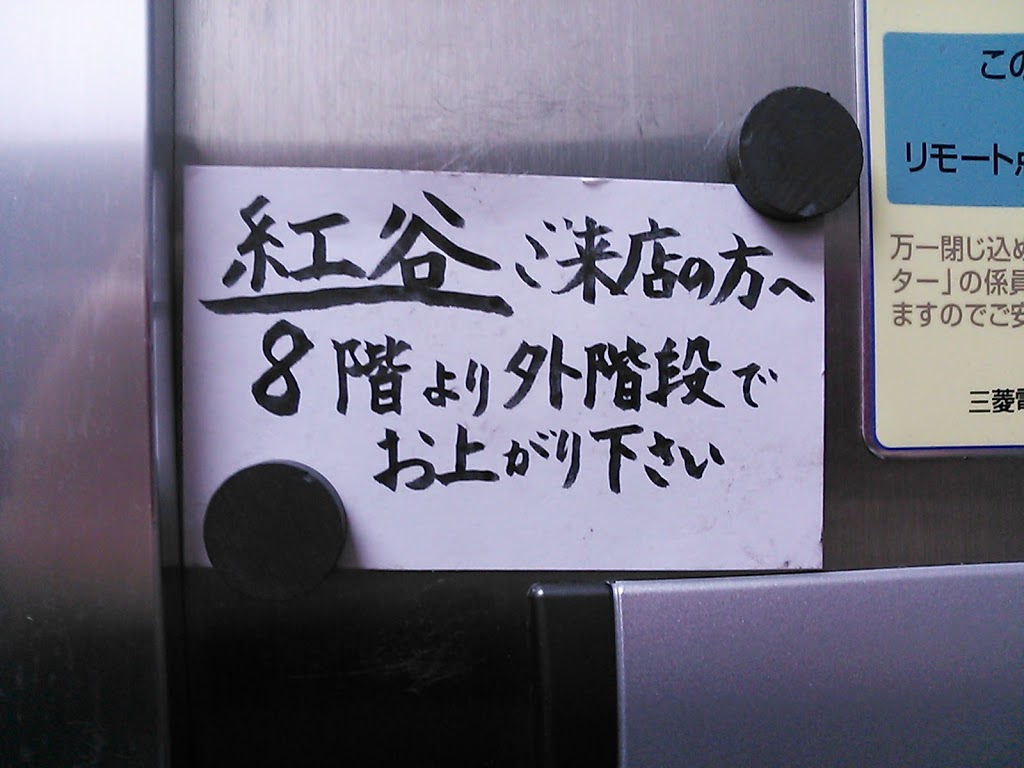 紅谷 ご来店の方へ
8階より外階段で
お上がり下さい
この
リモート点
万一閉じ込め
ター」の係員
ますのでご安
三菱電